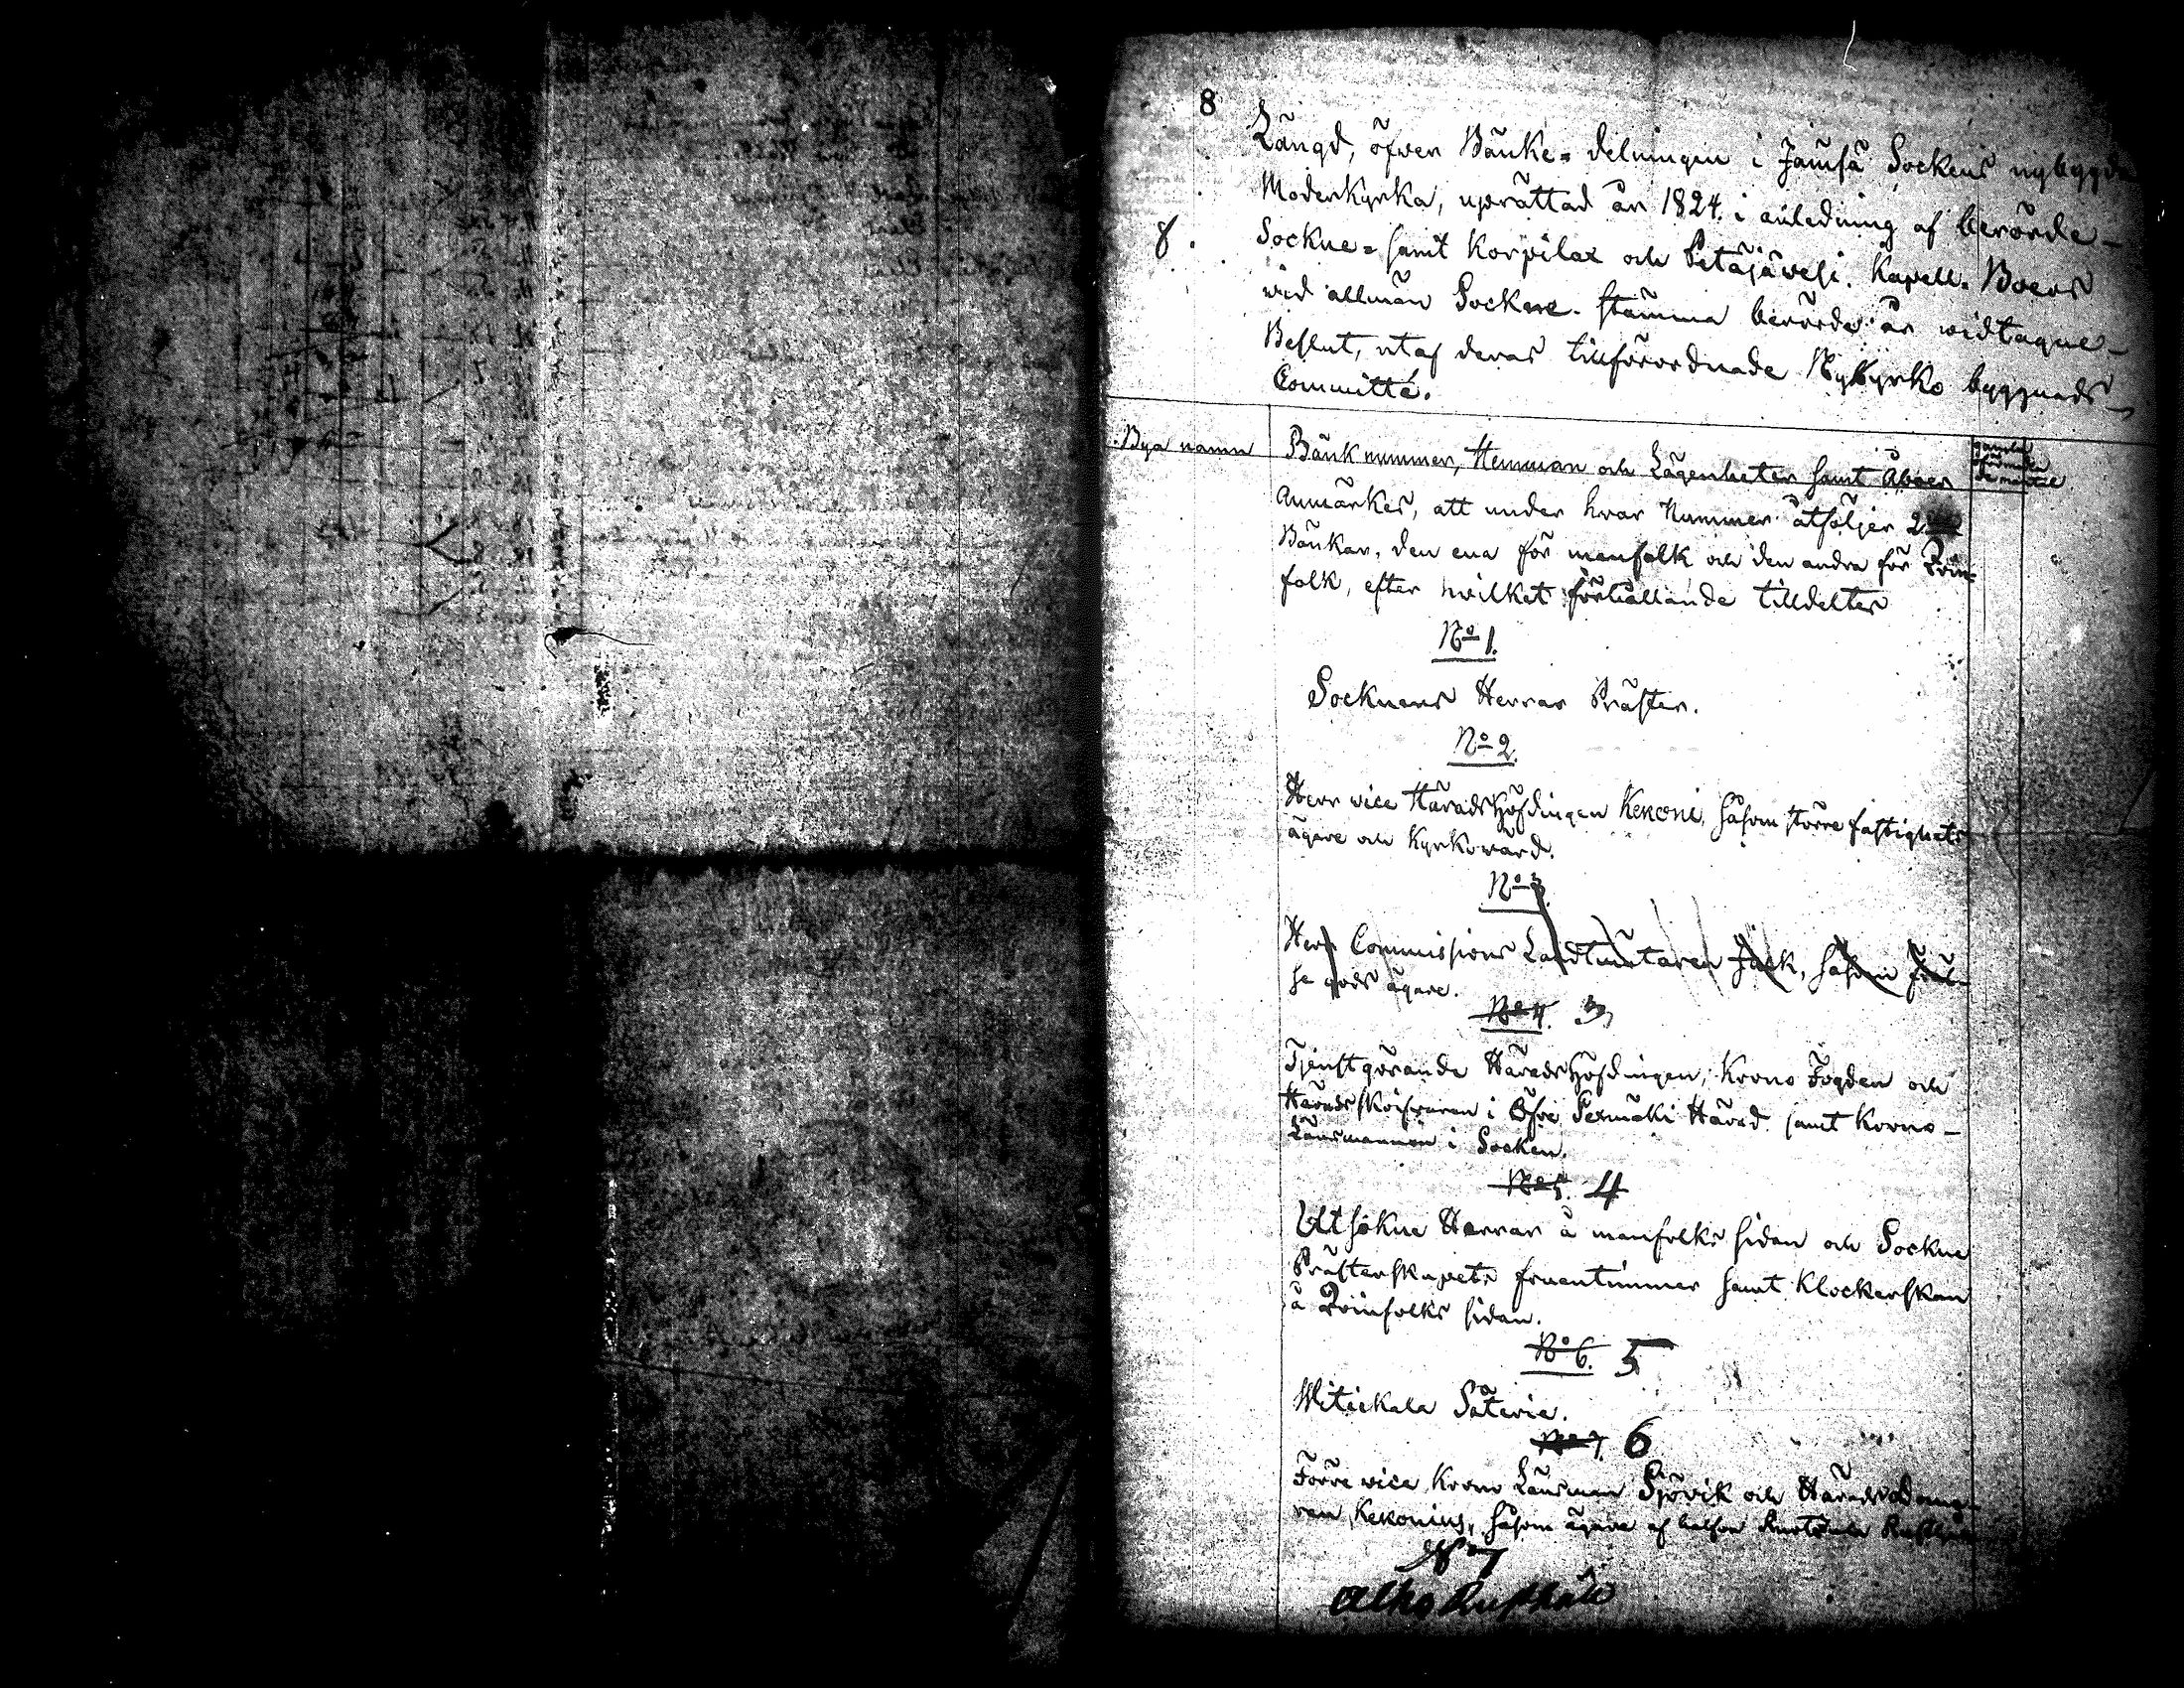 8
Längd, öfwer Bänke-delningen i Jämsä Sockens nybyggda
Moderkyrka, uprättad år 1824. i anledning af berörde
8.
Sockne- samt Korpilax och Petäjävesi Kapell-Boers
wid allmän Sockne-stämma berörde år widtagne
Beslut, utaf deras tillförordnade Nykyrko byggnads
Committé.
Bya namn
Bänk nummer, Hemman och Lägenheter samt Åboer
gamla
Anmärkes, att under hvar Nummer åtföljer 2
Bänkar, den ena för manfolk och den andra för Qvin-
folk, efter hvilket förhållande tilldeltes
No 1.
Socknens Herrar Präster.
No 2.
Herr vice Häradshöfdingen Kekoni, såsom större fastighets
ägare och Kyrkovärd.
No 3
Herr Commissions Landtmätaren Jack, såsom fräl-
se gods ägare.
No 4. 3
Tjenstgörande Häradshöfdingen, Krono Fogden och
Häradsskrifvaren i Öfre Sexmäki Härad samt Krono-
Länsmannen i Socken.
No 5. 4
Utsökne Herrar å manfolks sidan och Sockne
Prästerskapets fruentimmer samt Klockerskan
å Qvinfolks sidan.
No 6. 5
Witickala Säterie.
No 7. 6
Förre vice Krono Länsman Sjövik och Häradsdoma-
ren Kekonius, såsom ägare af halfva
No 7
Alho Rusthåll